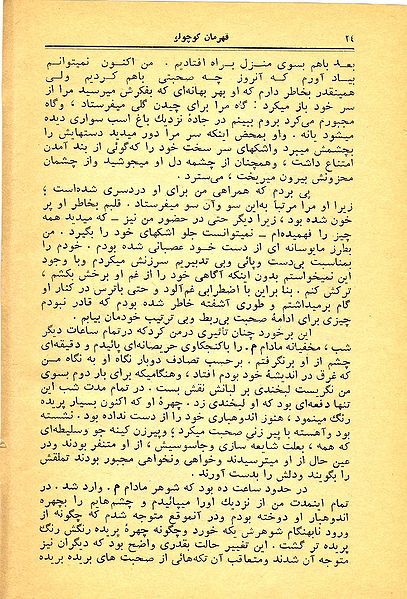 ۲٤ قهرمان کوچولو
بعد باهم بسوی منزل براه افتادیم . من اکنون نمیتوانم
بیاد آورم که آنروز چه صحبتی باهم کردیم ولی
همینقدر بخاطر دارم که او بهر بهانه‌ای که بفکرش میرسید مرا از
سر خود باز میکرد : گاه مرا برای چیدن گلی میفرستاد ، وگاه
مجبورم میکرد بروم ببینم در جاده نزدیك باغ اسب سواری دیده
میشود یانه . واو بمحض اینکه سر مرا دور میدید دستهایش را
بچشمش میبرد واشکهای سر سخت خود را که‌گوئی از بند آمدن
امتناع داشت ، وهمچنان از چشمه دل او میجوشید واز چشمان
محزونش بیرون میریخت ، می‌سترد .
پی بردم که همراهی من برای او دردسری شده‌است ؛
زیرا او مرا مرتبا به‌این سو وآن سو میفرستاد . قلبم بخاطر او پر
خون شده بود ، زیرا دیگر حتی در حضور من نیز ــ که میدید همه
چیز را فهمیده‌ام ــ نمیتوانست جلو اشکهای خود را بگیرد . من
بطرز مایوسانه ای از دست خود عصبانی شده بودم . خودم را
بمناسبت بی‌دست وپائی وبی تدبیریم سرزنش میکردم وبا وجود
این نمیخواستم بدون اینکه آگاهی خود را از غم او برخش بکشم ،
ترکش کنم . بنا براین با اضطرابی غم‌آلود و حتی باترس در کنار او
گام برمیداشتم و طوری آشفته خاطر شده بودم که قادر نبودم
چیزی برای ادامهٔ صحبت بی‌ربط وبی ترتیب خودمان بیابم .
این برخورد چنان تأثیری درمن کردکه درتمام ساعات دیگر
شب ، مخفیانه مادام م . را باکنجکاوی حریصانه‌ای پائیدم و دقیقه‌ای
چشم از او برنگرفتم . برحسب تصادف دوبار نگاه او به نگاه من
که غرق در اندیشهٔ خود بودم افتاد ، وهنگامیکه برای بار دوم بسوی
من نگریست لبخندی بر لبانش نقش بست . در تمام مدت شب این
تنها دفعه‌ای بود که او لبخندی زد. چهرهٔ او که اکنون بسیار پریده
رنگ مینمود ، هنوز اندوهباری خود را از دست نداده بود. نشسته
بود وآهسته با پیر زنی صحبت میکرد؛ وپیرزن کینه جو وسلیطه‌ای
که همه ، بعلت شایعه سازی وجاسوسیش ، از او متنفر بودند ودر
عین حال از او میترسیدند وخواهی ونخواهی مجبور بودند تملقش
را بگویند ودلش را بدست آورند .
در حدود ساعت ده بود که شوهر مادام م . وارد شد . در
تمام اینمدت من از نزدیك اورا میپائیدم و چشم‌هایم را بچهره
اندوهبار او دوخته بودم ودر آنموقع متوجه شدم که چگونه از
ورود نابهنگام شوهرش یکه خورد وچگونه چهرهٔ پریده رنگش رنگ
پریده تر گشت . این تغییر حالت بقدری واضح بود که دیگران نیز
متوجه آن شدند ومتعاقب آن تکه‌هائی از صحبت های بریده بریده